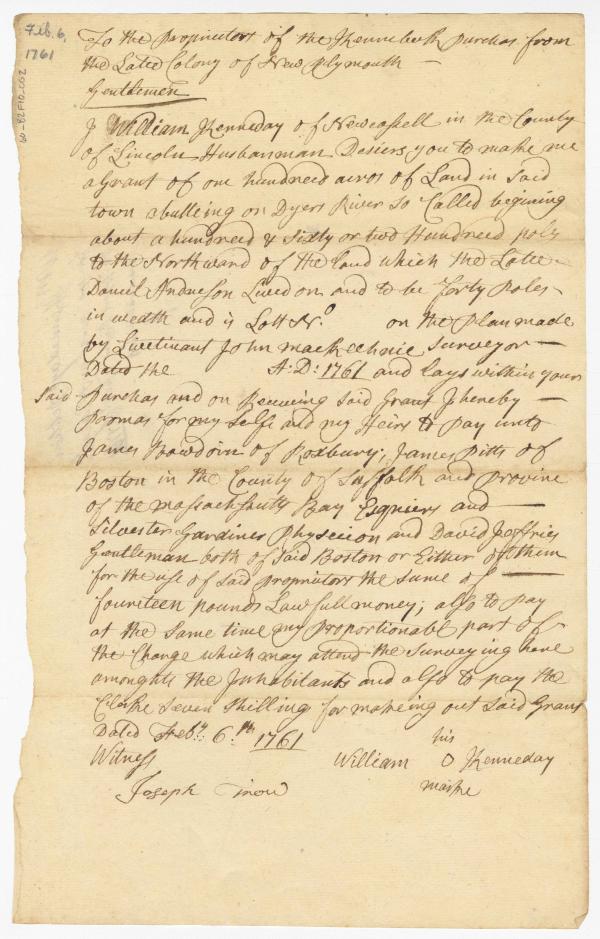 Feb. 6,
1761
60-82F10-002
To the Propriutors of the Kennebeck purchas from
the Lated Colony of New plymouth
Gentlemen
I William Kenneday of Newcastell in the County
of Lincoln Husbanman Desiers you to make me
a Grant of one hundreed acros of Land in Said
town abutteing on Dyers River So Called begining
about a hundreed & Sixty or two Hundreed pols
to the Northward of the land which the Late
Daniel Andueson Lived on and to be forty Poles
in weath and is Lott No on the plan made
by Liuetinant John mackechnie Surveyor
Dated the A: D: 1761 and lays within your
Said Purchas and on Receving Said Grant I hereby
Pormas for my Selfe and my Heirs to Pay unto
James Bowdoin of Roxbury, James Pitts of
Boston in the County of Suffolk and provine
of the massachsutts Bay Esquiers and
Silvester Gardiner Physecion and David Jeffries
Gentleman both of Said Boston or Either of them
for the use of Said proprietors the Sume of
foureteen pounds Lawfull money; also to pay
at the Same time my Proportionable part of
the Charge which may attend the Surveying have
amonghts the Inhabitants and also to pay the
Clarke Seven Shilling for makeing out Said Grant
Dated Feby. 6th. 1761
his
Witness William O Kenneday
Joseph marke